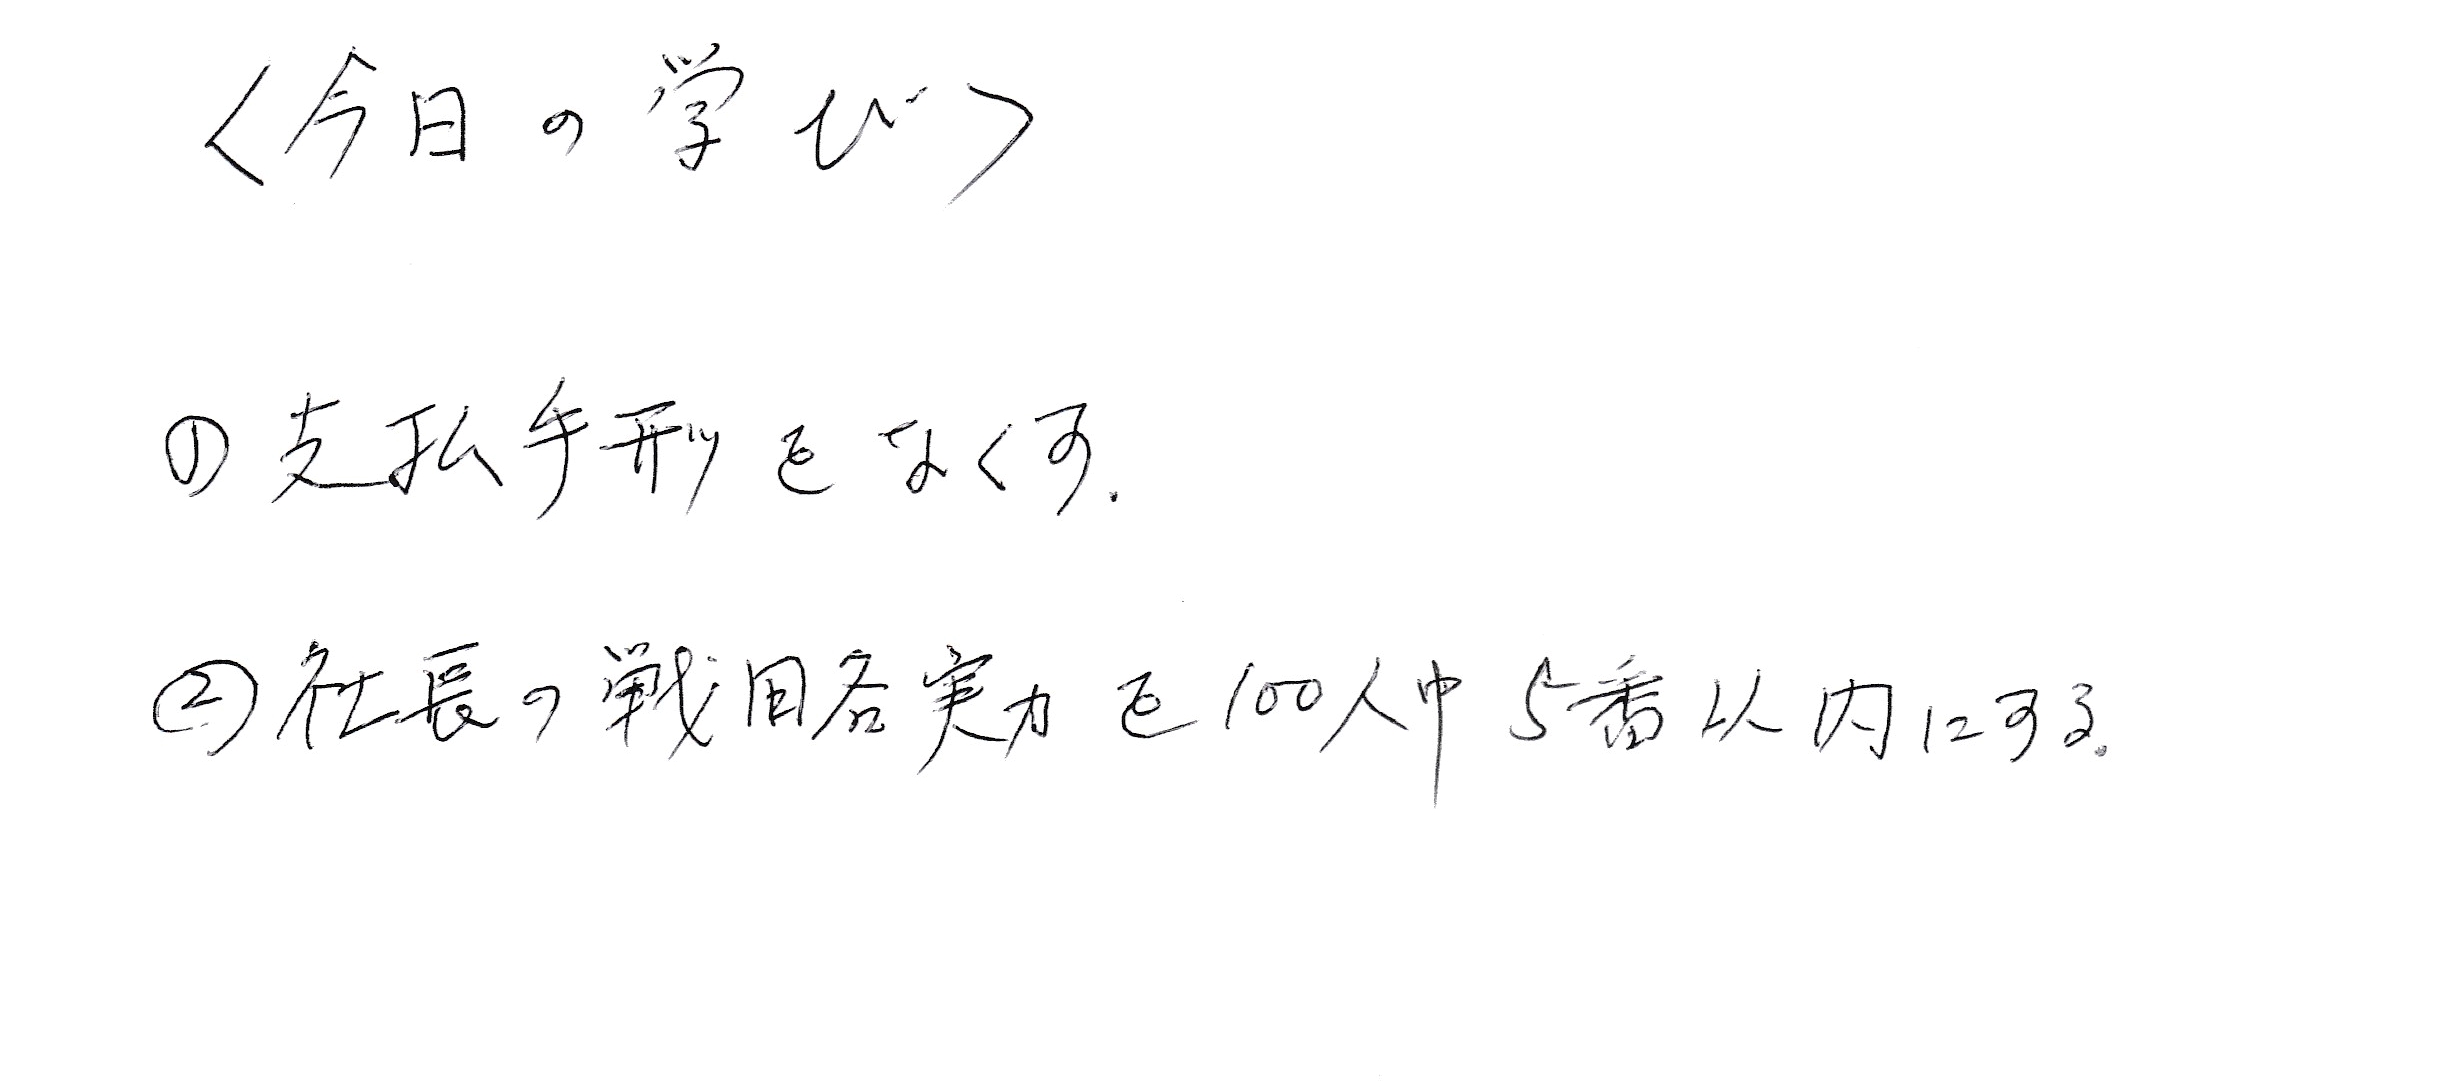 〈今日の学び〉
①支払手形をなくす.
②社長の戦略実力を100人中5番以内にする.